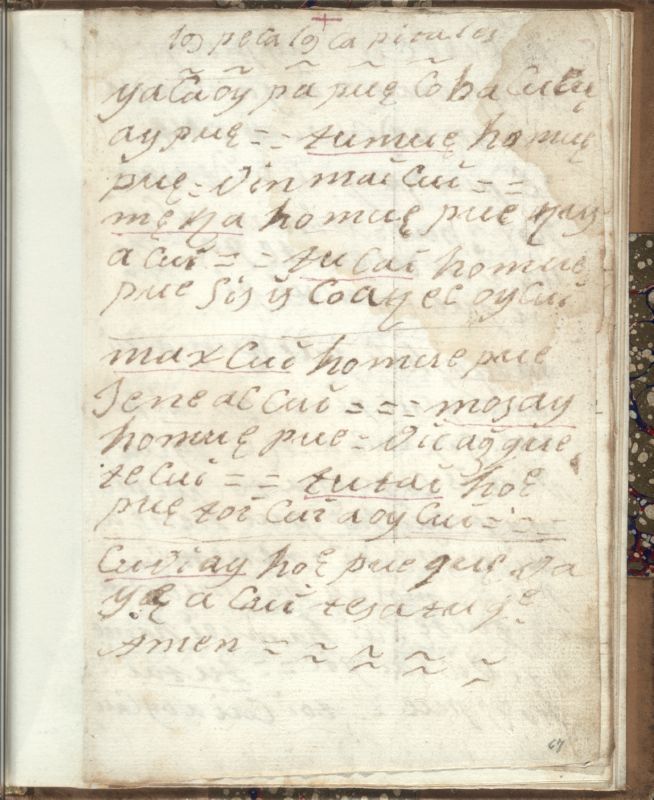 los pecalos capitales
yacaoy pa puę coba cuiuy
ay puę = = tumuę homuę
puę = vin mai cui = =
mę ya homuę puę yay
a cui = = tu cai homuę
pue sis is coay ec oy cui
max cui homue pue
Jene ac cui = = = mosay
homuę pue = vicay que
te cui = = tu tai hoę
puę toi cui aoy cui = = =
cuviay hoę pue quę ya
yę a cui tesa tu gę
Amen =
67